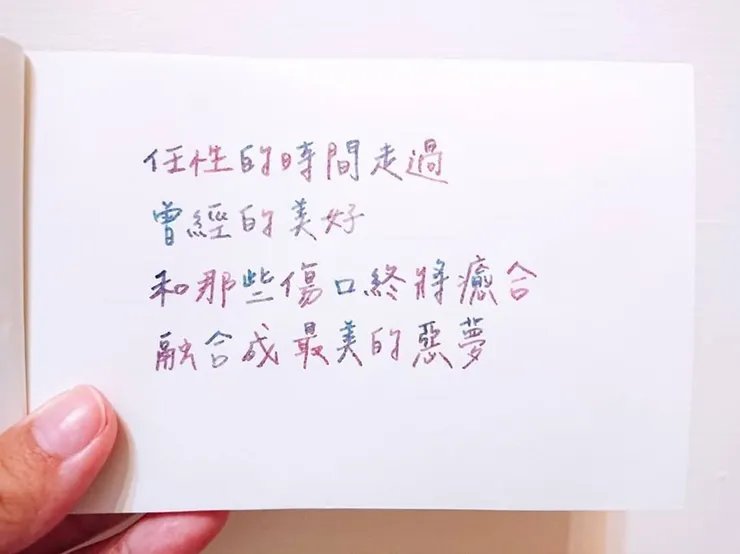 任性的時間走過
曾經的美好
和那些傷口終將癒合
融合成最美的惡夢